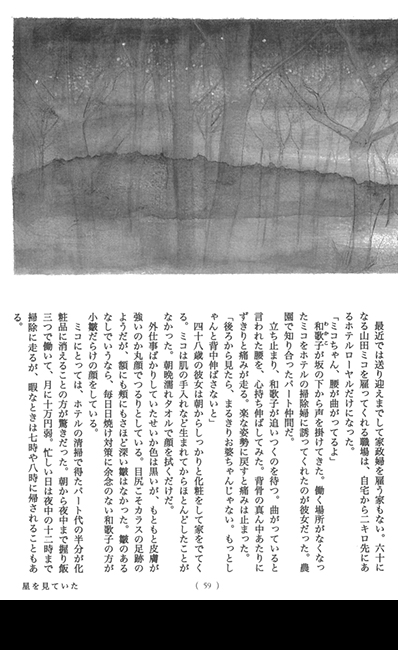 最近では送り迎えまでして家政婦を雇う家もない。六十に
なる山田ミコを雇ってくれる職場は、自宅から二キロ先にあ
るホテルローヤルだけになった。
「ミコちゃん、腰が曲がってるよ」
和歌子が坂の下から声を掛けてきた。働く場所がなくなっ
たミコをホテルの掃除婦に誘ってくれたのが彼女だった。農
園で知り合ったパート仲間だ。
立ち止まり、和歌子が追いつくのを待つ。曲がっていると
言われた腰を、心持ち伸ばしてみた。背骨の真ん中あたりに
ずきりと痛みが走る。楽な姿勢に戻すと痛みは止まった。
「後ろから見たら、まるきりお婆ちゃんじゃない。もっとし
ゃんと背中伸ばさないと」
四十八歳の彼女は朝からしっかりと化粧をして家をでてく
る。ミコは肌の手入れなど生まれてからほとんどしたことが
なかった。朝晩濡れタオルで顔を拭くだけだ。
外仕事ばかりしていたせいか色は黒いが、もともと皮膚が
強いのか丸顔でつるりとしている。目尻こそカラスの足跡の
ようだが、額にも頬にもさほど深い皺はなかった。皺のある
なしでいうなら、毎日日焼け対策に余念のない和歌子の方が
小皺だらけの顔をしている。
ミコにとっては、ホテルの清掃で得たパート代の半分が化
粧品に消えることの方が驚きだった。朝から夜中まで握り飯
三つで働いて、月に十万円弱。忙しい日は夜中の十二時まで
掃除に走るが、暇なときは七時や八時に帰されることもあ
る。
(59)
星を見ていた